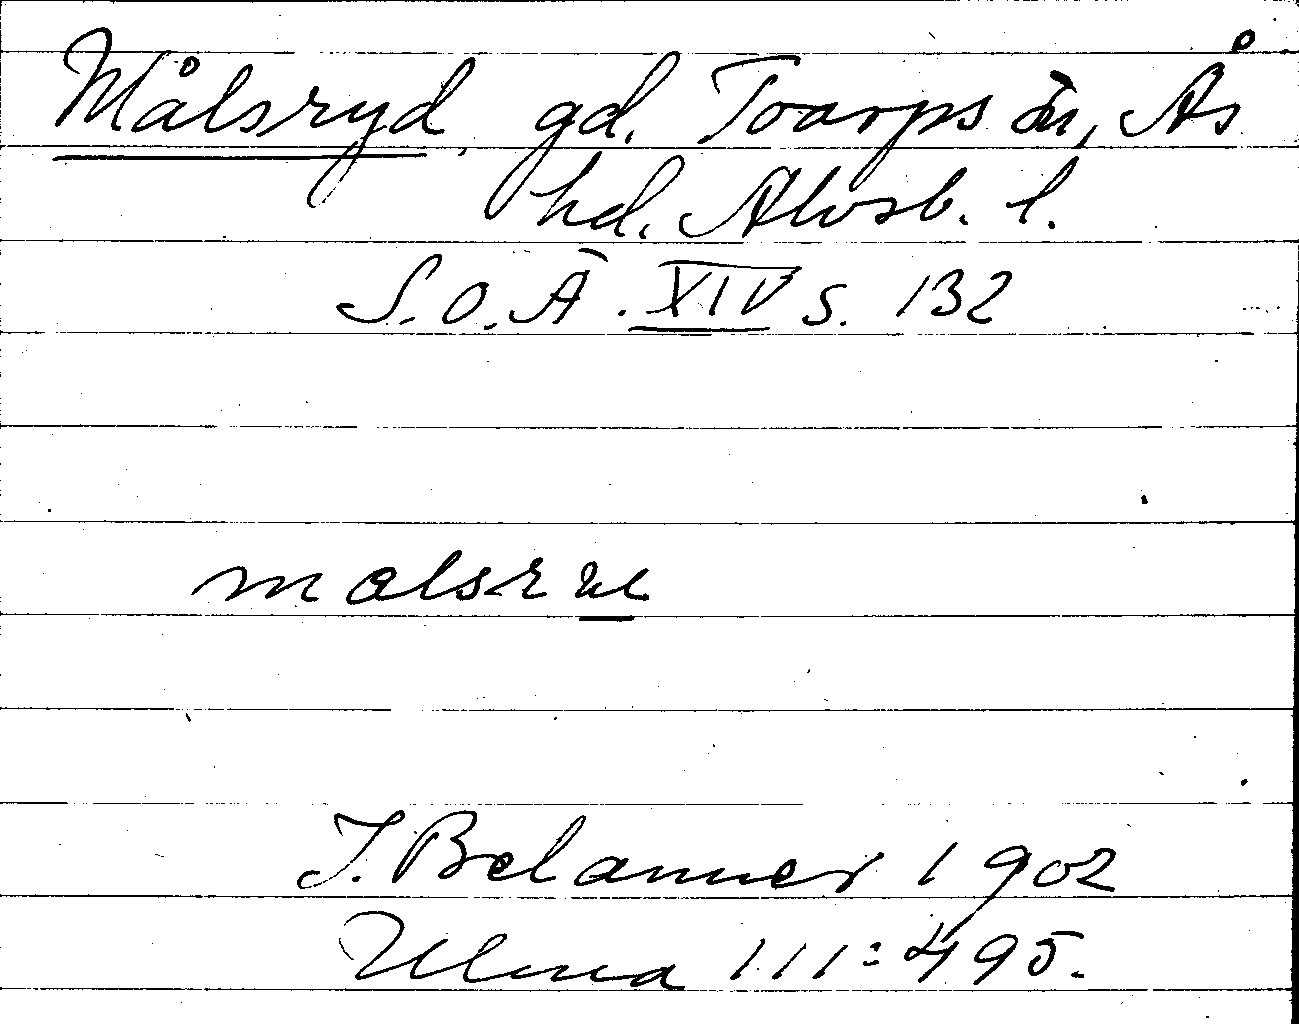 Målsryd, gd. Toarps sn, Ås
hd. Älvsb. l.
S.O.Ä. XIV s. 132
malsrɯ
J. Belanner 1902
Ulma 111:495.